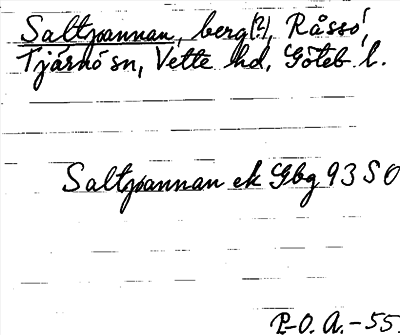 Saltpannan, berg(?), Råssö,
Tjärnö sn, Vette hd, Göteb l.
Saltpannan ek Gbg 93 SO
P-O. A. - 55.